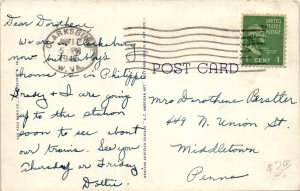 Dear Dorothene
We are in Clarksburg
now but Kathy's
phone is in Philippi
Grady & I are going
up to the station
soon to see about
our trains. See you
Thursday or Friday
Dottie
CLARKSBURG
W. VA.
POST CARD
UNITED STATES
POSTAGE
1 CENT 1
Mrs Dorothene Perstler
449 N. Union St
Middletown
Penna